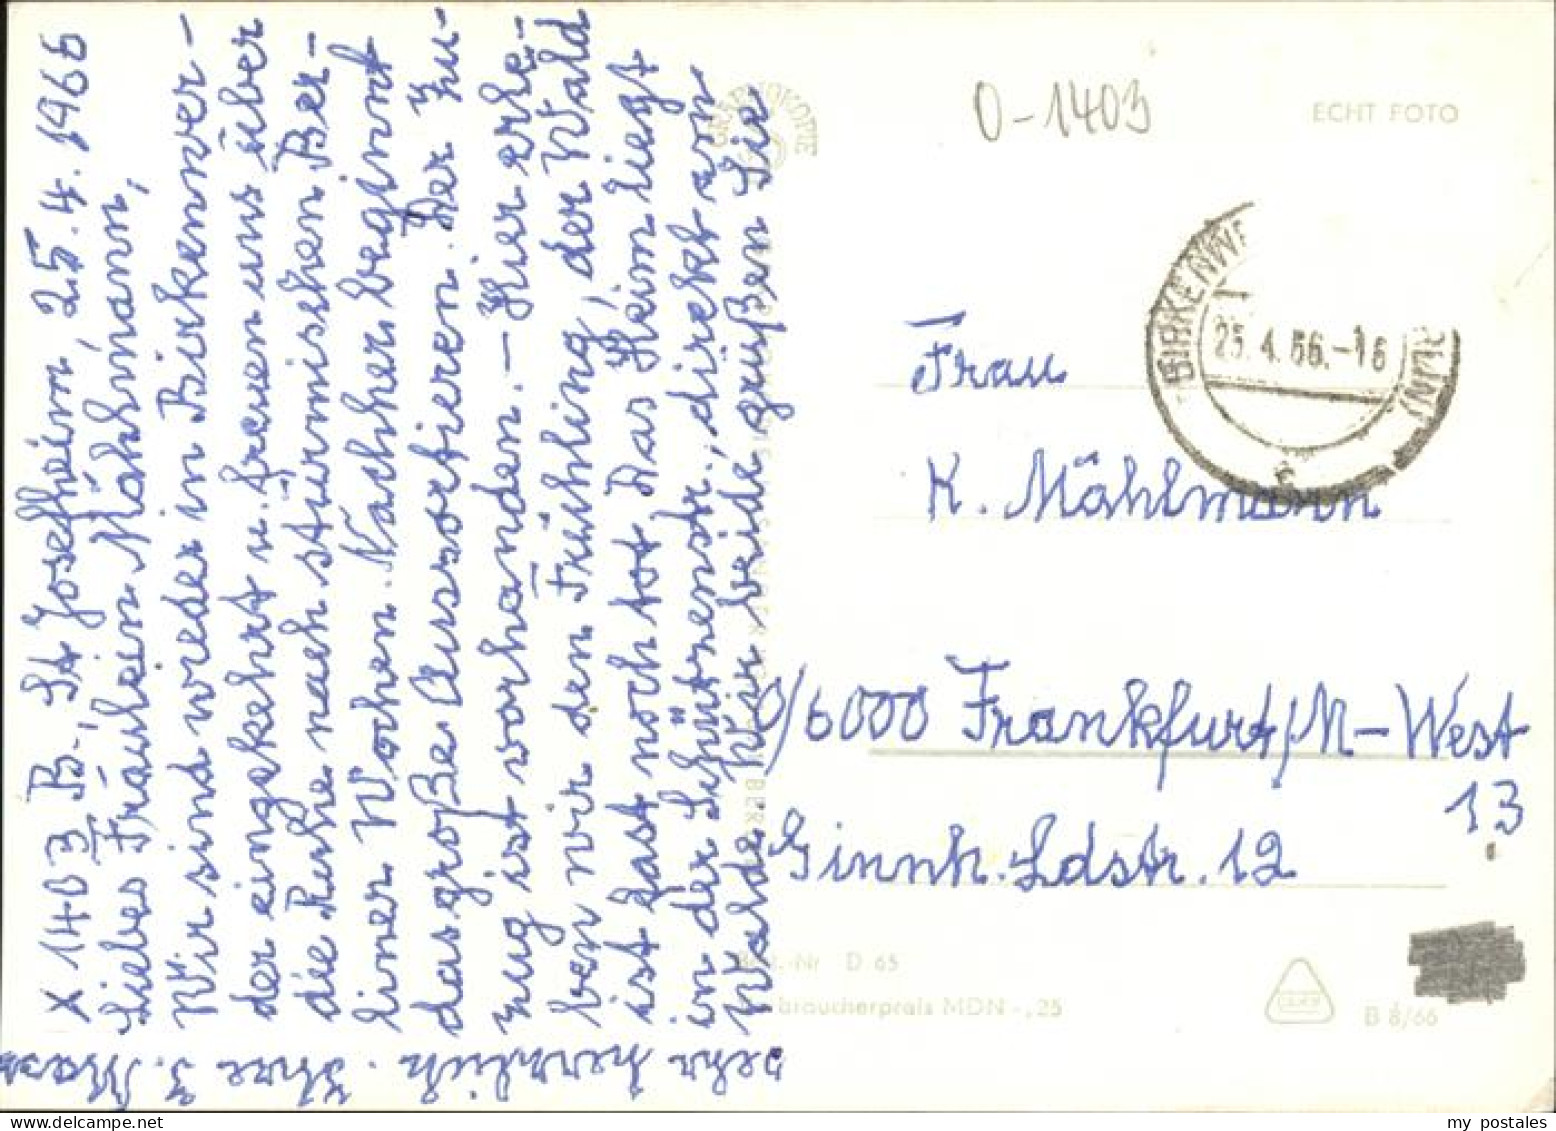 X 1403 B., St Josefheim, 25.4.1966
Liebes Fräulein Mählmann,
Wir sind wieder in Birkenwer-
der eingekehrt u. freuen uns über
die Ruhe nach stürmischen Ber-
liner Wochen. Nachher beginnt
das große Aussortieren. Der Zu-
zug ist vorhanden. – Hier erle-
ben wir den Frühling, der Wald
ist fast noch tot. Das Heim liegt
in der Schützenstr., direkt am
Walde. Wir beide grüßen Sie
sehr herzlich. Ihre J.
O-1403
ECHT FOTO
BIRKENWE
25.4.66.-16
Frau
K. Mählmann
6000 Frankfurt/M-West
13
Ginnh. Ldstr. 12
Best.-Nr D 65
braucherpreis MDN -,25
B 8/66
my postales